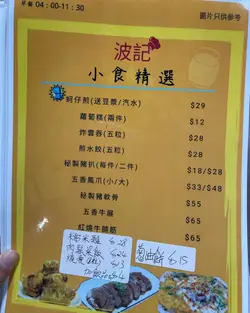 早餐 04:00-11:30
圖片只供參考
波記
小食精選
蚵仔煎(送豆漿/汽水) $29
蘿蔔糕(兩件) $12
炸雲吞(五粒) $28
煎水餃(五粒) $28
秘製豬扒(每件/二件) $18/$28
五香鳳爪(小/大) $33/$48
秘製豬軟骨 $55
五香牛𦟌 $65
紅燒牛腩筋 $65
$28
$26
$13
$4
葱油餅 $15